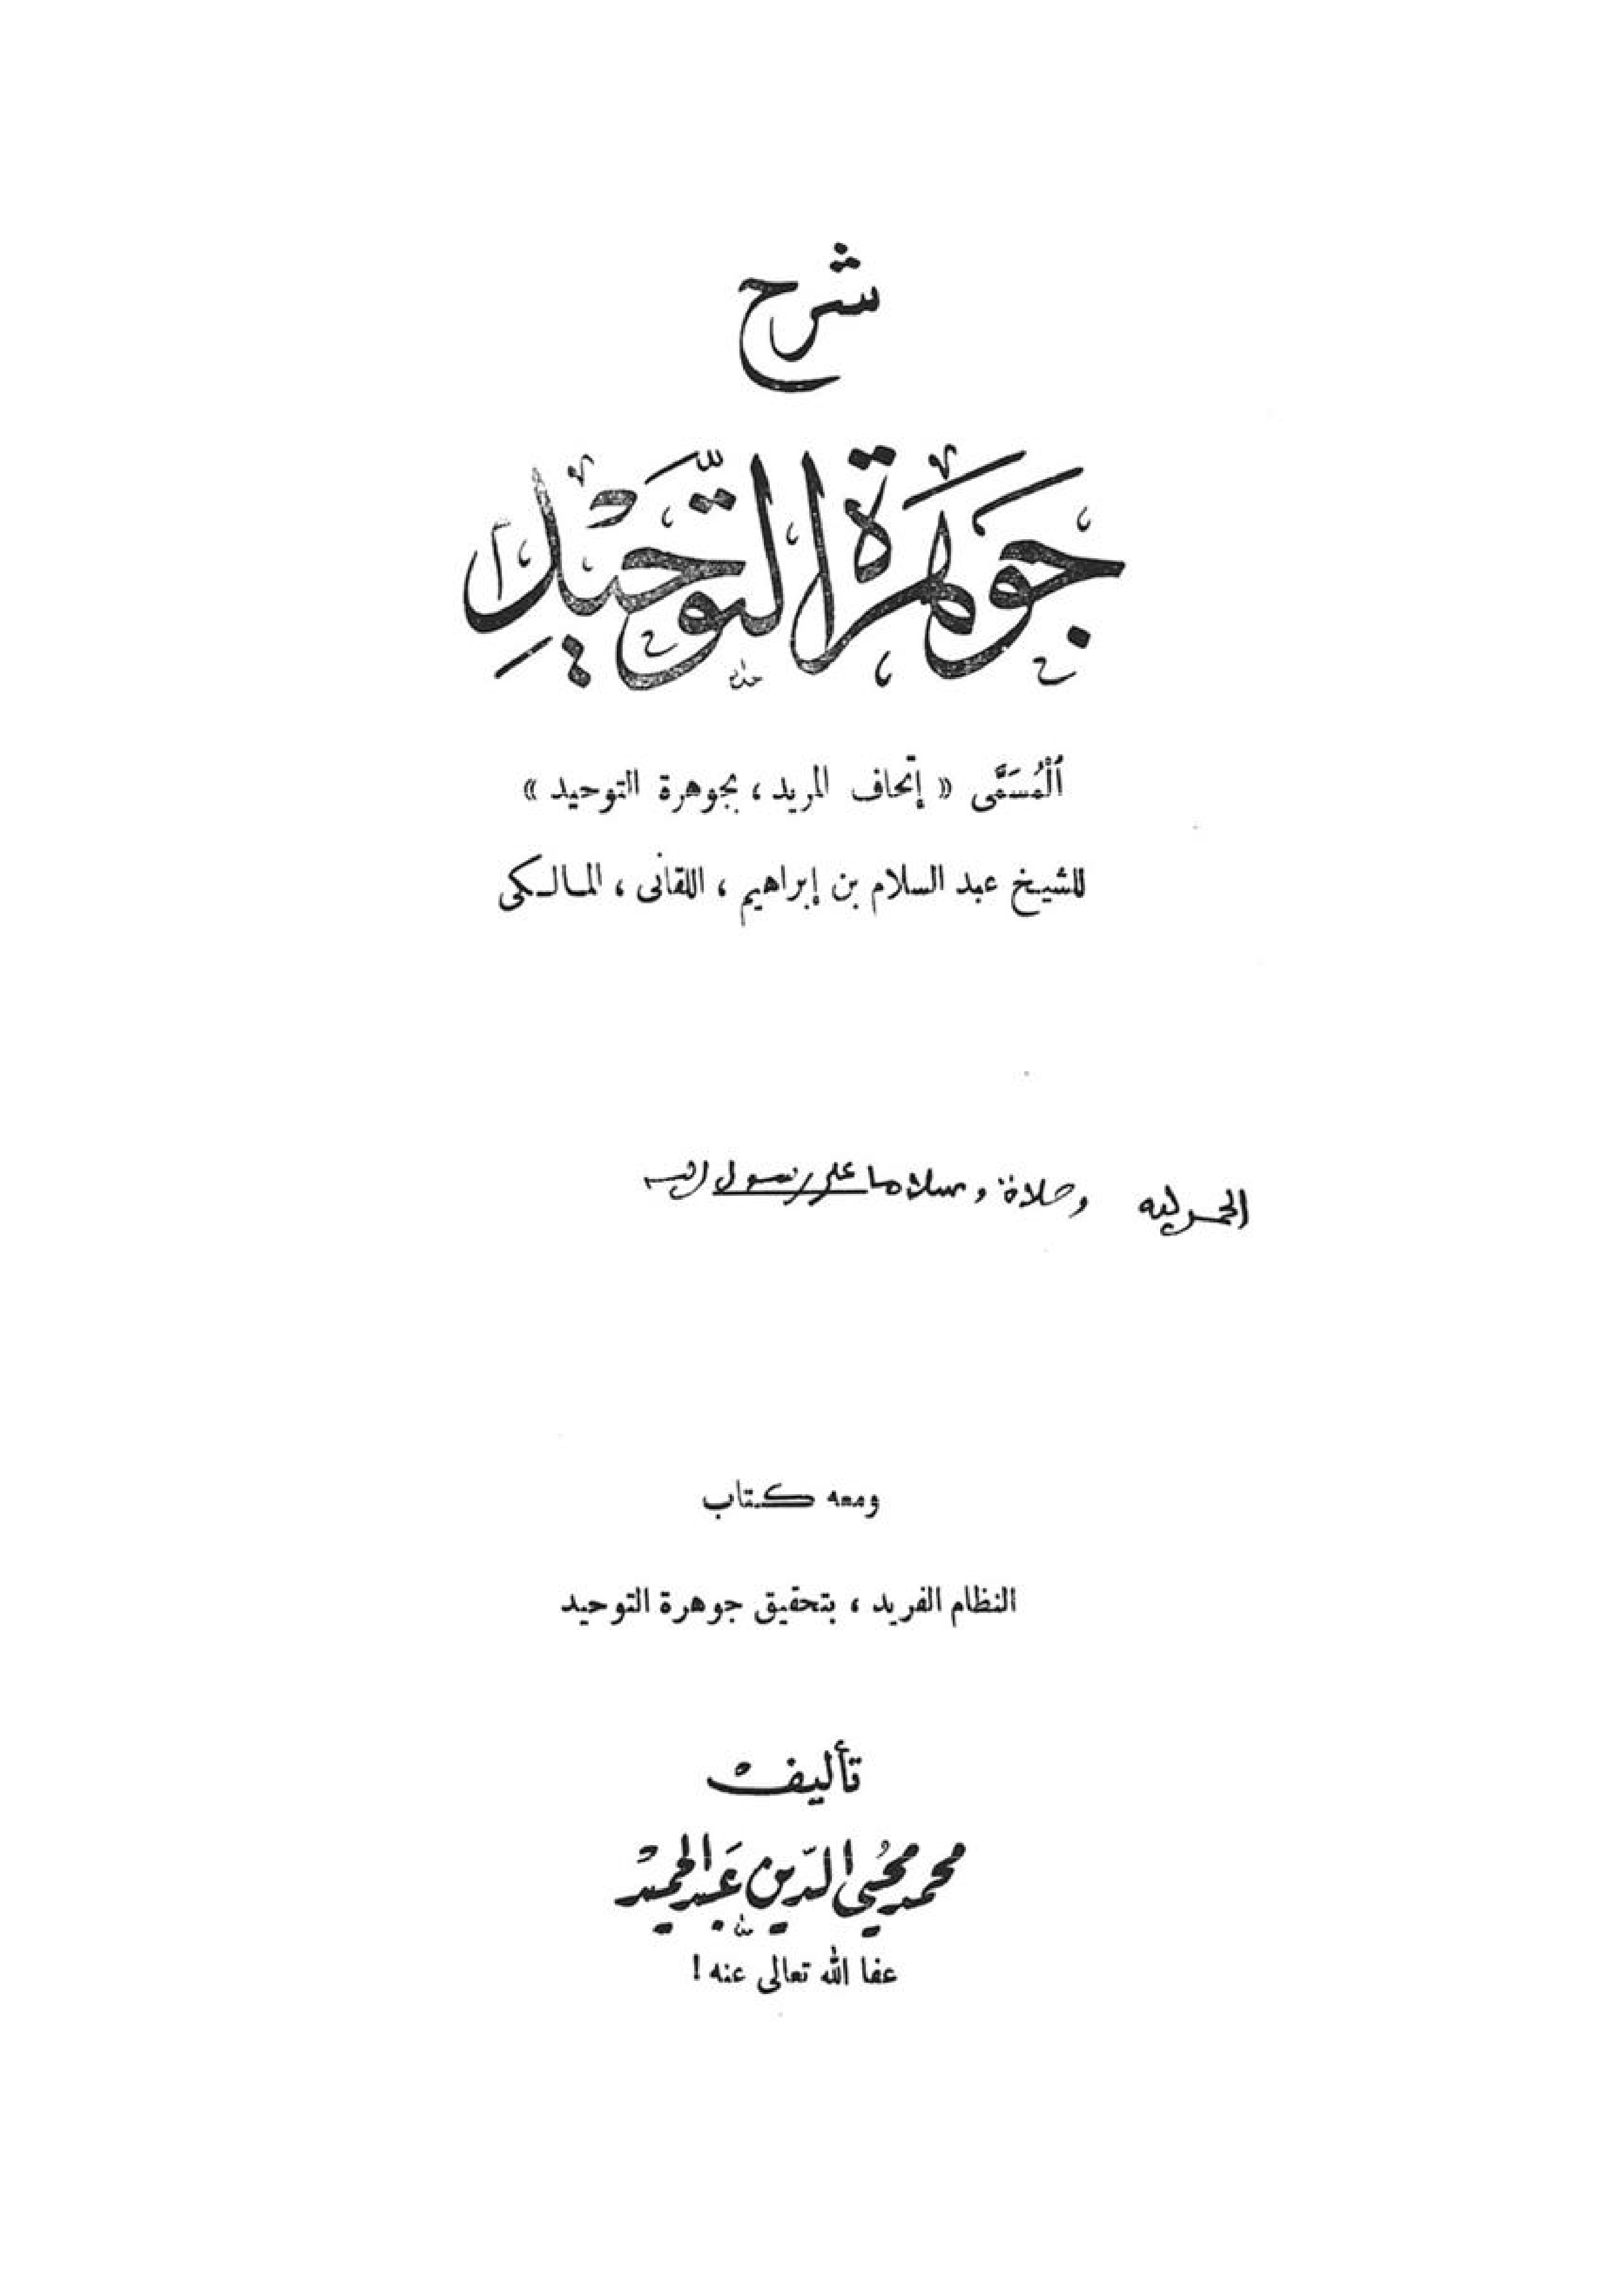 شرح
جَوْهَرَةُ التَّوْحِيْدِ
اَلْمُسَمَّى « إتحاف المريد ، بجوهرة التوحيد »
للشيخ عبد السلام بن إبراهيم ، اللقانى ، المالكى
الحمد لله وصلاة وسلاما على رسول الله
ومعه كتاب
النظام الفريد ، بتحقيق جوهرة التوحيد
تأليف
محمد محيي الدّين عَبد الحميد
عفا الله تعالى عنه !